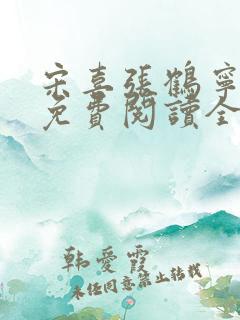 宋喜張鶴寧
免費閱讀全
韩愛霞
未经同意禁止转载